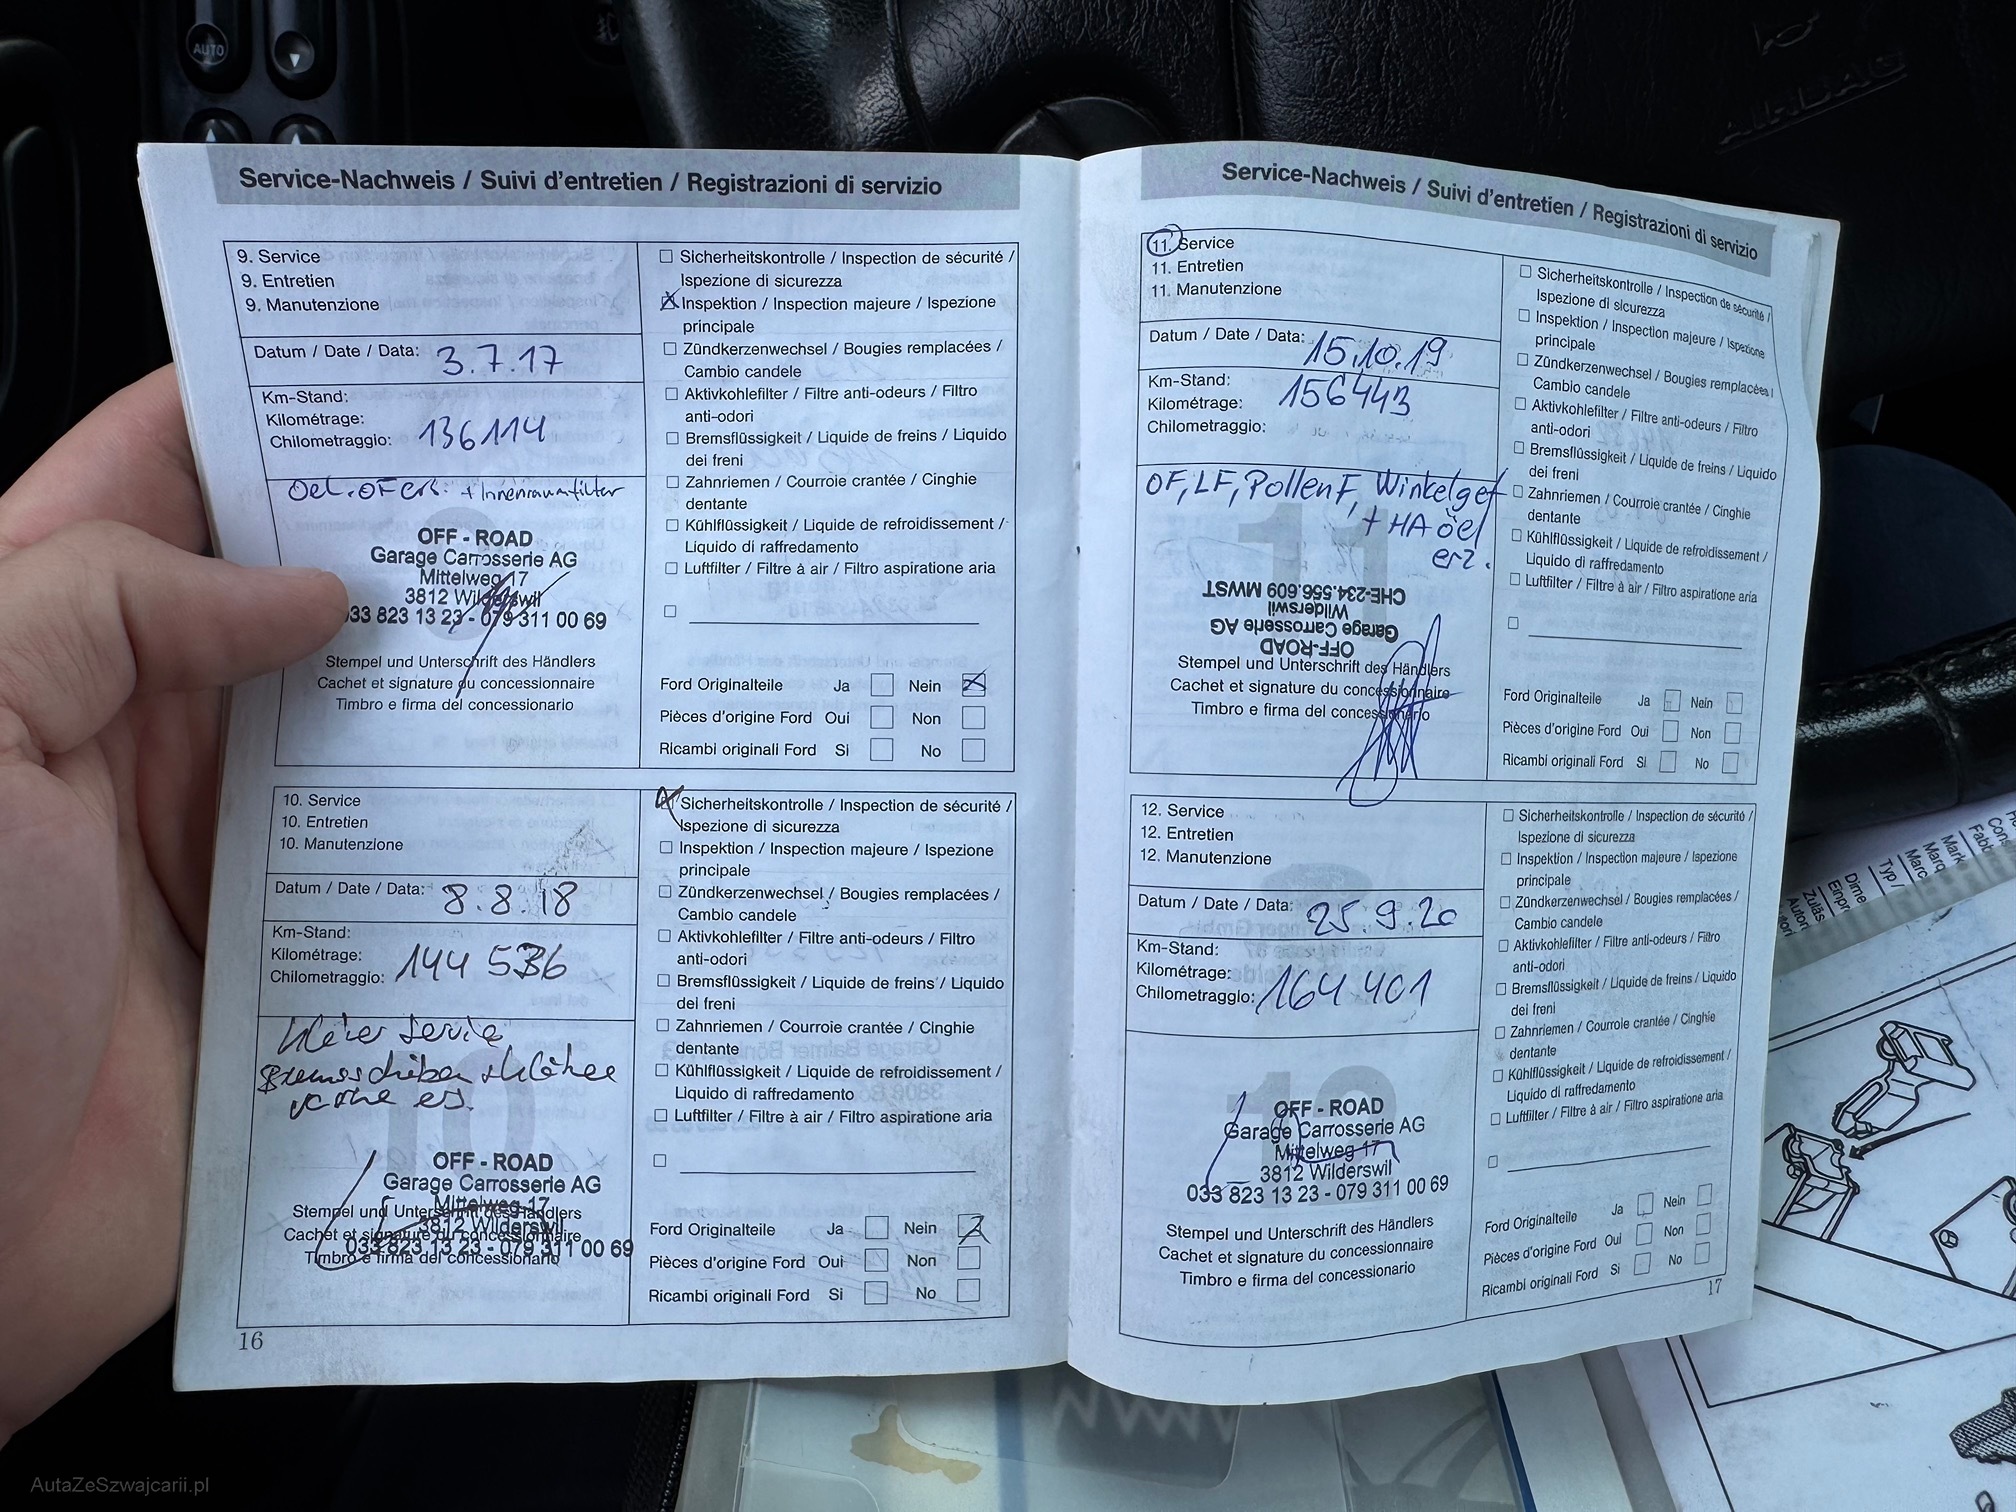 AUTO
AIRBAG
Service-Nachweis / Suivi d'entretien / Registrazioni di servizio
9. Service
9. Entretien
9. Manutenzione
Datum / Date / Data: 3.7.17
Km-Stand:
Kilométrage:
Chilometraggio: 136114
Oel. OF ers. + Innenraumfilter
OFF - ROAD
Garage Carrosserie AG
Mittelweg 17
3812 Wilderswil
033 823 13 23 - 079 311 00 69
Stempel und Unterschrift des Händlers
Cachet et signature du concessionnaire
Timbro e firma del concessionario
Sicherheitskontrolle / Inspection de sécurité /
Ispezione di sicurezza
Inspektion / Inspection majeure / Ispezione
principale
Zündkerzenwechsel / Bougies remplacées /
Cambio candele
Aktivkohlefilter / Filtre anti-odeurs / Filtro
anti-odori
Bremsflüssigkeit / Liquide de freins / Liquido
dei freni
Zahnriemen / Courroie crantée / Cinghie
dentante
Kühlflüssigkeit / Liquide de refroidissement /
Liquido di raffredamento
Luftfilter / Filtre à air / Filtro aspiratione aria
Ford Originalteile Ja Nein
Pièces d'origine Ford Oui Non
Ricambi originali Ford Si No
10. Service
10. Entretien
10. Manutenzione
Datum / Date / Data: 8.8.18
Km-Stand:
Kilométrage:
Chilometraggio: 144 536
Service
OFF - ROAD
Garage Carrosserie AG
Mittelweg 17
Stempel und Unterschrift des Händlers
3812 Wilderswil
Cachet et signature du concessionnaire
033 823 13 23 - 079 311 00 69
Timbro e firma del concessionario
Sicherheitskontrolle / Inspection de sécurité /
Ispezione di sicurezza
Inspektion / Inspection majeure / Ispezione
principale
Zündkerzenwechsel / Bougies remplacées /
Cambio candele
Aktivkohlefilter / Filtre anti-odeurs / Filtro
anti-odori
Bremsflüssigkeit / Liquide de freins / Liquido
dei freni
Zahnriemen / Courroie crantée / Cinghie
dentante
Kühlflüssigkeit / Liquide de refroidissement /
Liquido di raffredamento
Luftfilter / Filtre à air / Filtro aspiratione aria
Ford Originalteile Ja Nein
Pièces d'origine Ford Oui Non
Ricambi originali Ford Si No
16
Service-Nachweis / Suivi d'entretien / Registrazioni di servizio
11. Service
11. Entretien
11. Manutenzione
Datum / Date / Data: 15.10.19
Km-Stand: 156443
Kilométrage:
Chilometraggio:
OF, LF, PollenF, Winkelget
+ HA öel
erz.
OFF-ROAD
Garage Carrosserie AG
Wilderswil
CHE-234.556.609 MWST
Stempel und Unterschrift des Händlers
Cachet et signature du concessionnaire
Timbro e firma del concessionario
Sicherheitskontrolle / Inspection de sécurité /
Ispezione di sicurezza
Inspektion / Inspection majeure / Ispezione
principale
Zündkerzenwechsel / Bougies remplacées /
Cambio candele
Aktivkohlefilter / Filtre anti-odeurs / Filtro
anti-odori
Bremsflüssigkeit / Liquide de freins / Liquido
dei freni
Zahnriemen / Courroie crantée / Cinghie
dentante
Kühlflüssigkeit / Liquide de refroidissement /
Liquido di raffredamento
Luftfilter / Filtre à air / Filtro aspiratione aria
Ford Originalteile Ja Nein
Pièces d'origine Ford Oui Non
Ricambi originali Ford Si No
12. Service
12. Entretien
12. Manutenzione
Datum / Date / Data: 25 9.20
Km-Stand:
Kilométrage:
Chilometraggio: 164 401
12
OFF - ROAD
Garage Carrosserie AG
Mittelweg 17
3812 Wilderswil
033 823 13 23 - 079 311 00 69
Stempel und Unterschrift des Händlers
Cachet et signature du concessionnaire
Timbro e firma del concessionario
Sicherheitskontrolle / Inspection de sécurité /
Ispezione di sicurezza
Inspektion / Inspection majeure / Ispezione
principale
Zündkerzenwechsel / Bougies remplacées /
Cambio candele
Aktivkohlefilter / Filtre anti-odeurs / Filtro
anti-odori
Bremsflüssigkeit / Liquide de freins / Liquido
dei freni
Zahnriemen / Courroie crantée / Cinghie
dentante
Kühlflüssigkeit / Liquide de refroidissement /
Liquido di raffredamento
Luftfilter / Filtre à air / Filtro aspiratione aria
Ford Originalteile Ja Nein
Pièces d'origine Ford Oui Non
Ricambi originali Ford Si No
17
AutaZeSzwajcarii.pl